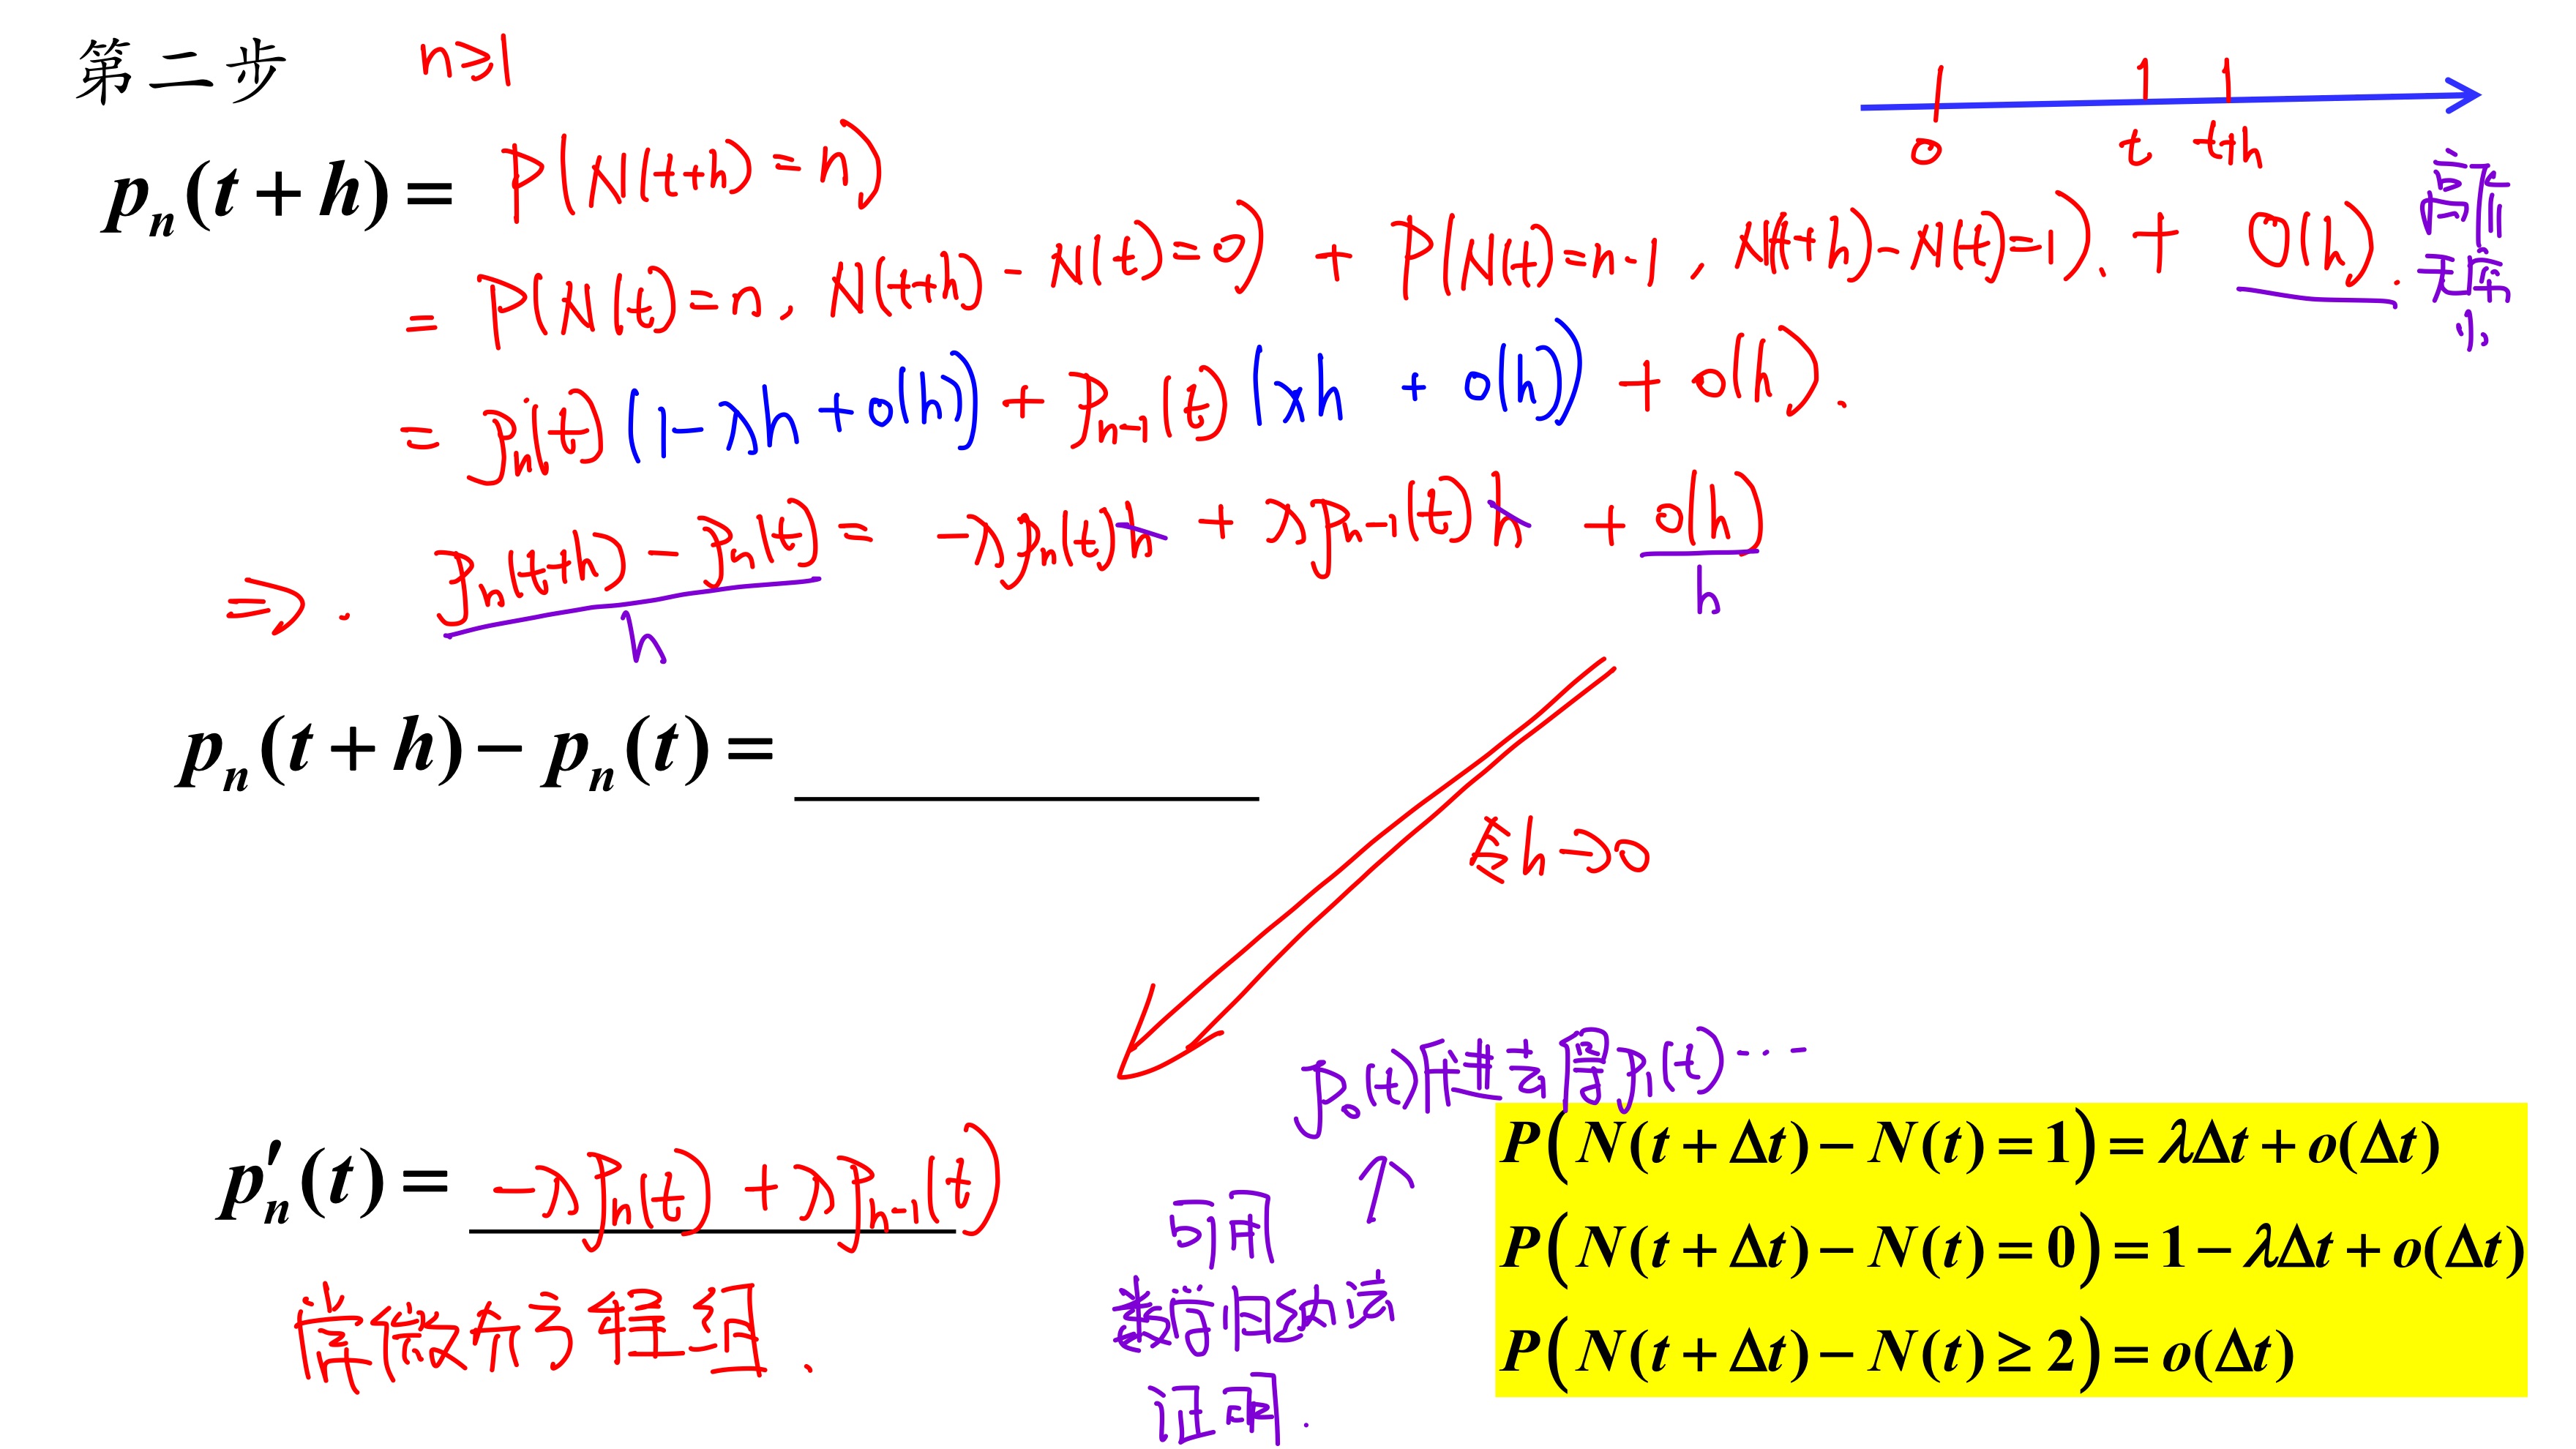 第二步 n≥1
0 t t+h
pₙ(t + h) = P(N(t+h) = n)
= P(N(t)=n, N(t+h) - N(t)=0) + P(N(t)=n-1, N(t+h)-N(t)=1). + O(h).
高阶
无穷
小
= pₙ(t) (1-λh + o(h)) + pₙ₋₁(t) (λh + o(h)) + o(h).
⇒. (pₙ(t+h) - pₙ(t))/h = -λpₙ(t)h + λpₙ₋₁(t)h + o(h)/h
pₙ(t + h) − pₙ(t) = ________
令h→0
p₀(t)代进去得p₁(t)⋯
p′ₙ(t) = -λpₙ(t) + λpₙ₋₁(t)
常微分方程组.
可用 ↑
数学归纳法
证明.
P(N(t + Δt) − N(t) = 1) = λΔt + o(Δt)
P(N(t + Δt) − N(t) = 0) = 1 − λΔt + o(Δt)
P(N(t + Δt) − N(t) ≥ 2) = o(Δt)